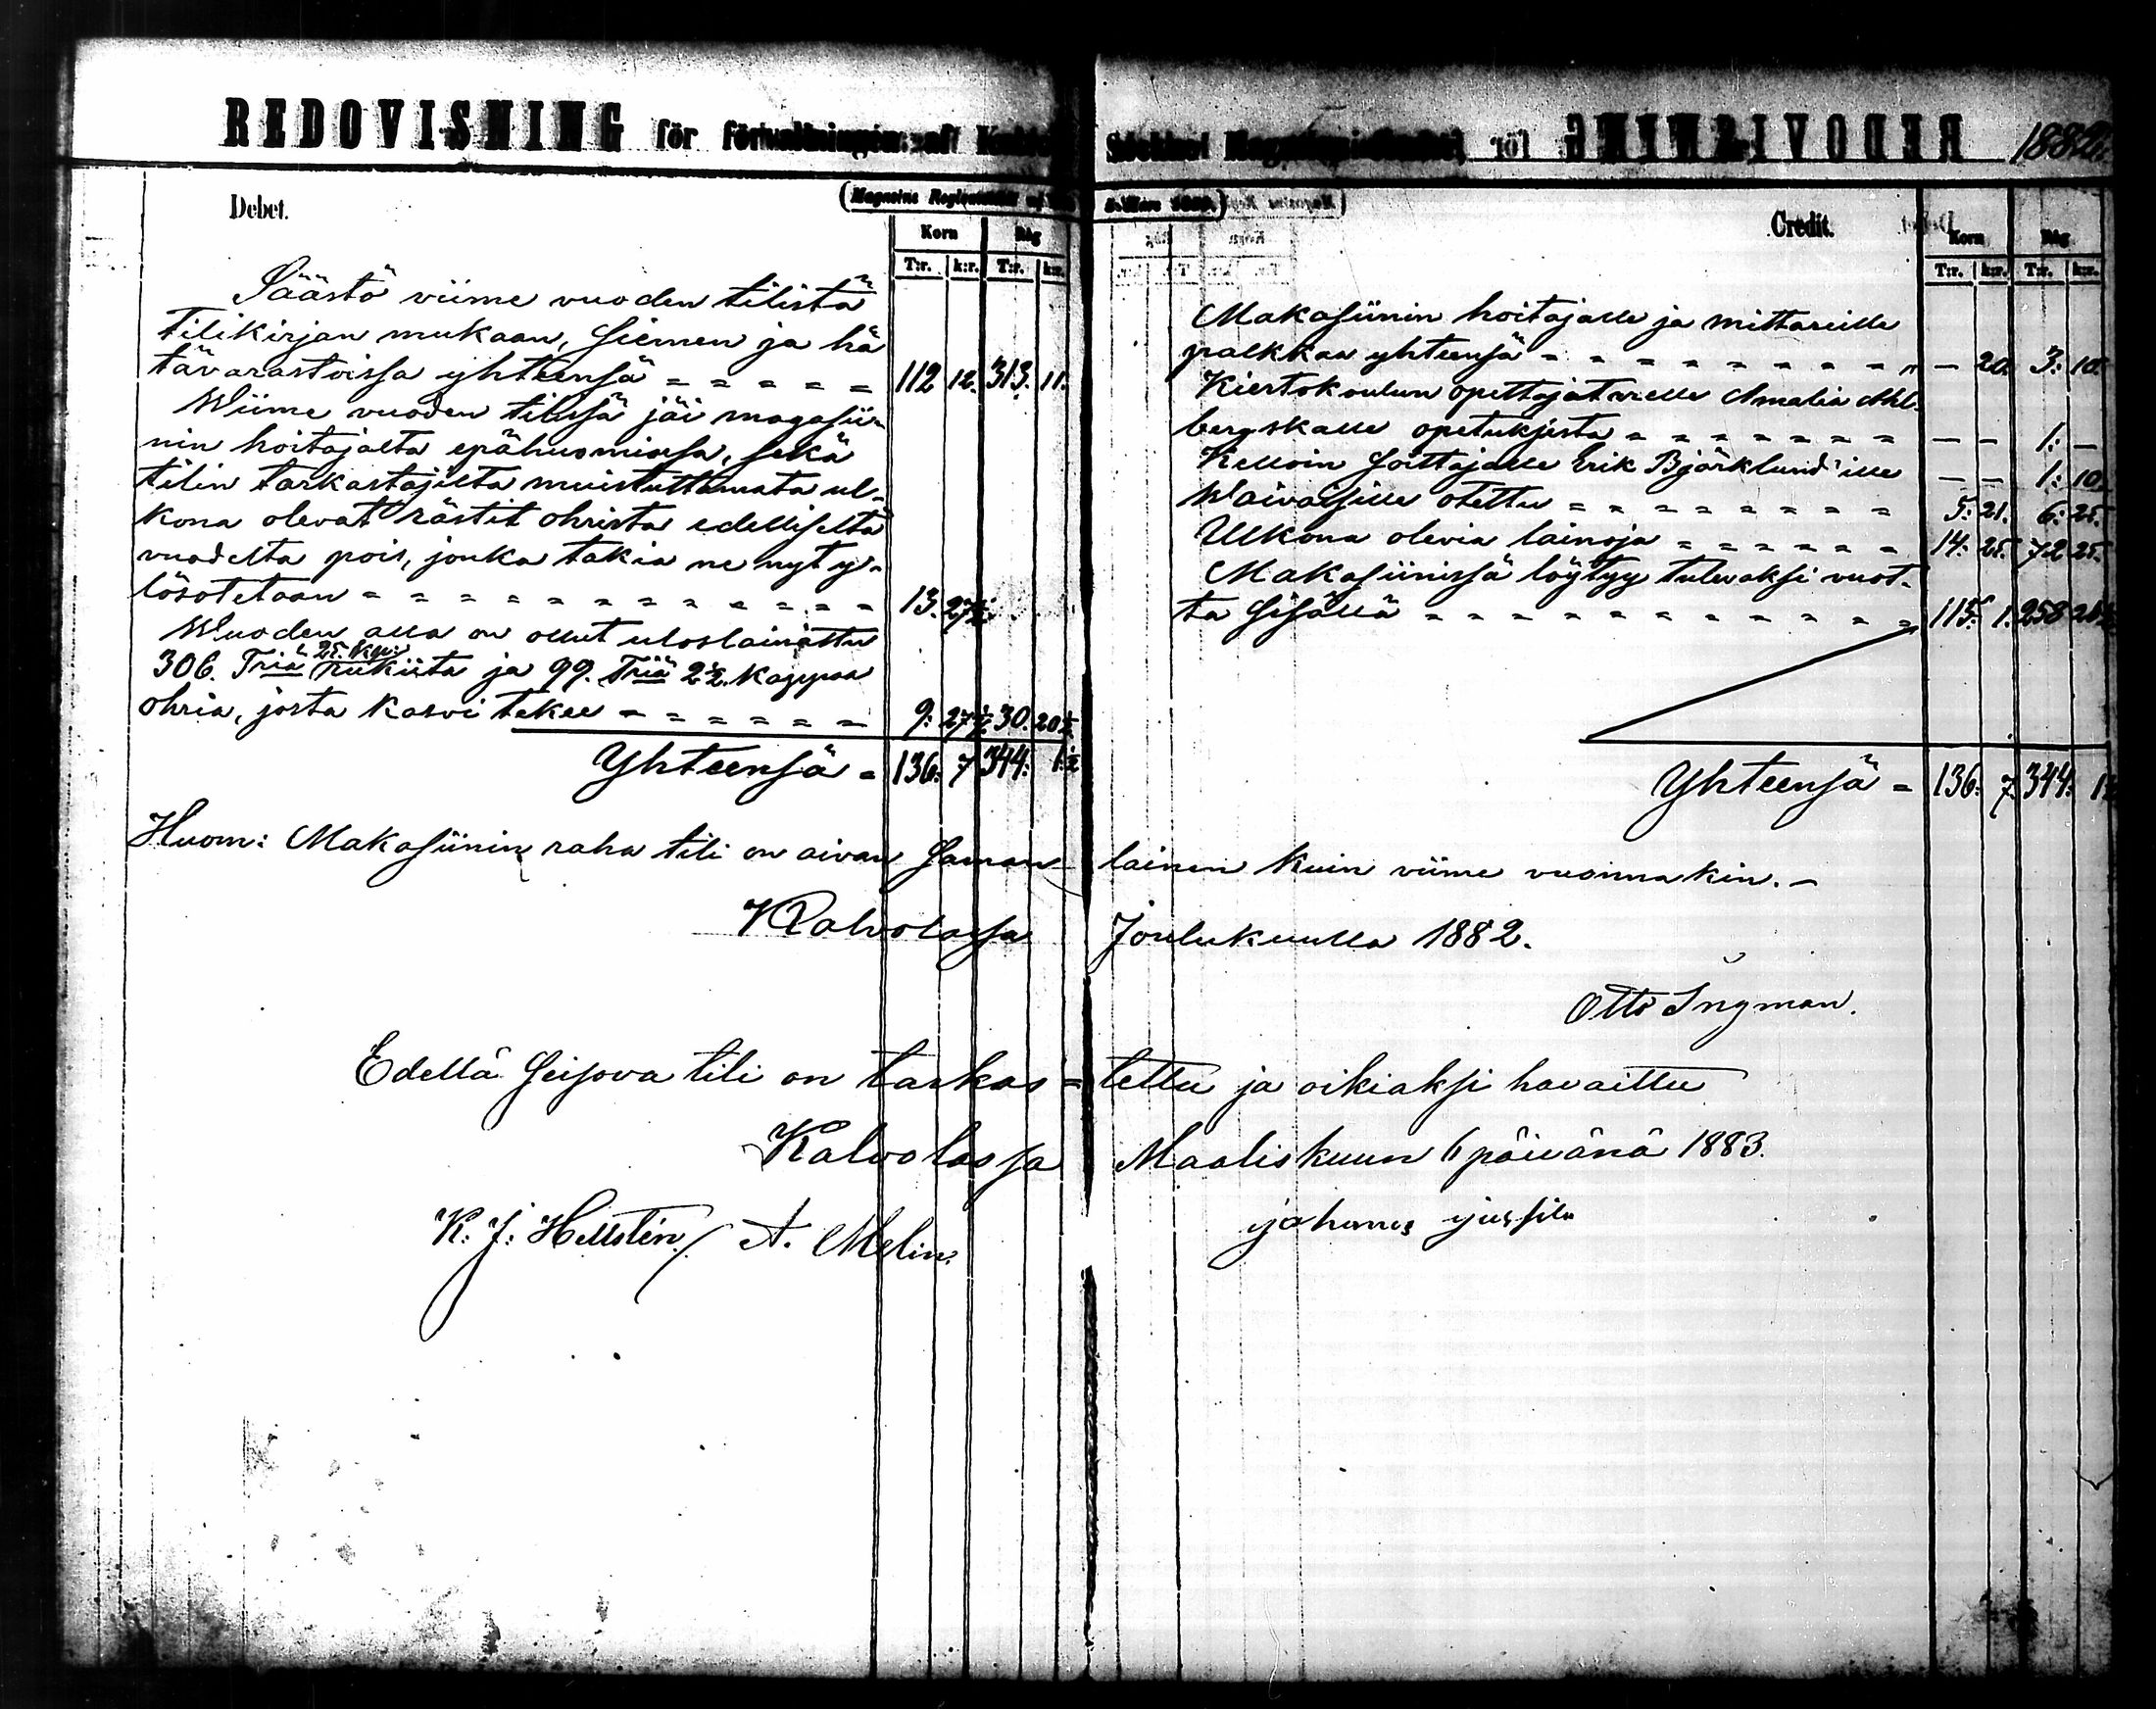 REDOVISNING för förvaltningen af
Sockne Magasinet 1882.
(Magasins Reglementet af
Mars
Debet.
Korn Råg
T:r. k:r. T:r. k:r.
Säästö viime vuoden tilistä
tilikirjan mukaan, siemen ja hä
tävarastoissa yhteensä = = = = = 112 12. 313. 11.
Wiime vuoden tilissä jäi magasii-
nin hoitajalta epähuomiossa, sekä
tilin tarkastajilta muistuttamata ul-
kona olevat rästit ohrista edelliseltä
vuodelta pois, jonka takia ne nyt y-
lösotetaan = = = = = = = = = = = 13. 27½.
Wuoden alla on ollut uloslainattu
306. Triä 25. kpp: rukiita ja 99. Triä 2½. kappaa
ohria, josta kasvi tekee = = = = = = 9: 27½ 30. 20½.
Yhteensä = 136: 7 344: 1½
Credit.
Korn Råg
T:r. k:r. T:r. k:r.
Makasiinin hoitajalle ja mittareille
palkkaa yhteensä = = = = = = = = " — 20. 3: 10.
Kiertokoulun opettajatarelle Amalia Ahl-
bergskalle opetuksesta = = = = = = = — — 1: —
Kelloin soittajalle Erik Björklund'ille — — 1: 10.
Waivaisille otettu = = = = = = = = 5: 21. 6: 25.
Ulkona olevia lainoja = = = = = = 14: 25. 72 25.
Makasiinissä löytyy tulevaksi vuot-
ta sisällä = = = = = = = = = = = 115: 1. 258
Yhteensä = 136: 7. 344: 1½
Huom: Makasiinin raha tili on aivan saman- lainen kuin viime vuonna kin. —
Kalvolassa Joulukuulla 1882.
Otto Ingman.
Edellä seisova tili on tarkas = tettu ja oikiaksi havaittu
Kalvolassa Maaliskuun 6 päivänä 1883.
K. J. Hellstén / A. Melin. johannes jussila